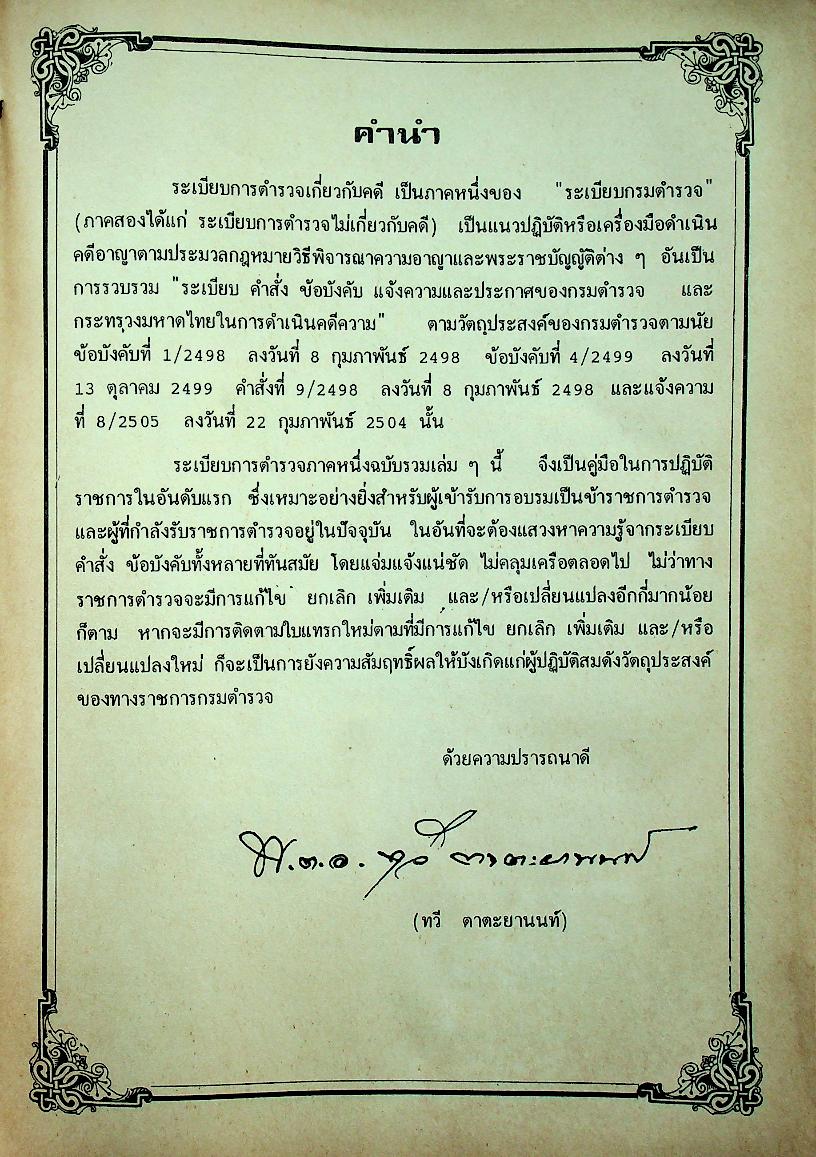 คำนำ
ระเบียบการตำรวจเกี่ยวกับคดี เป็นภาคหนึ่งของ "ระเบียบกรมตำรวจ"
(ภาคสองได้แก่ ระเบียบการตำรวจไม่เกี่ยวกับคดี) เป็นแนวปฏิบัติหรือเครื่องมือดำเนิน
คดีอาญาตามประมวลกฎหมายวิธีพิจารณาความอาญาและพระราชบัญญัติต่าง ๆ อันเป็น
การรวบรวม "ระเบียบ คำสั่ง ข้อบังคับ แจ้งความและประกาศของกรมตำรวจ และ
กระทรวงมหาดไทยในการดำเนินคดีความ" ตามวัตถุประสงค์ของกรมตำรวจตามนัย
ข้อบังคับที่ 1/2498 ลงวันที่ 8 กุมภาพันธ์ 2498 ข้อบังคับที่ 4/2499 ลงวันที่
13 ตุลาคม 2499 คำสั่งที่ 9/2498 ลงวันที่ 8 กุมภาพันธ์ 2498 และแจ้งความ
ที่ 8/2505 ลงวันที่ 22 กุมภาพันธ์ 2504 นั้น
ระเบียบการตำรวจภาคหนึ่งฉบับรวมเล่ม ๆ นี้ จึงเป็นคู่มือในการปฏิบัติ
ราชการในอันดับแรก ซึ่งเหมาะอย่างยิ่งสำหรับผู้เข้ารับการอบรมเป็นข้าราชการตำรวจ
และผู้ที่กำลังรับราชการตำรวจอยู่ในปัจจุบัน ในอันที่จะต้องแสวงหาความรู้จากระเบียบ
คำสั่ง ข้อบังคับทั้งหลายที่ทันสมัย โดยแจ่มแจ้งแน่ชัด ไม่คลุมเครือตลอดไป ไม่ว่าทาง
ราชการตำรวจจะมีการแก้ไข ยกเลิก เพิ่มเติม และ/หรือเปลี่ยนแปลงอีกกี่มากน้อย
ก็ตาม หากจะมีการติดตามใบแทรกใหม่ตามที่มีการแก้ไข ยกเลิก เพิ่มเติม และ/หรือ
เปลี่ยนแปลงใหม่ ก็จะเป็นการยังความสัมฤทธิ์ผลให้บังเกิดแก่ผู้ปฏิบัติสมดังวัตถุประสงค์
ของทางราชการกรมตำรวจ
ด้วยความปรารถนาดี
พ.ต.อ. ทวี ตาตะยานนท์
(ทวี ตาตะยานนท์)